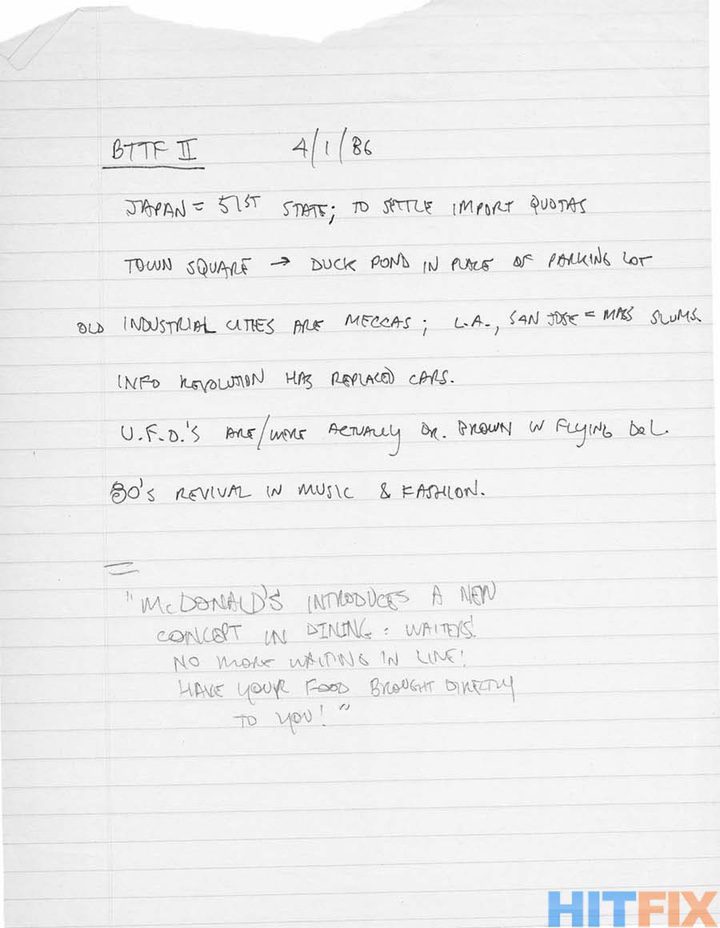 BTTF II 4/1/86
JAPAN = 51ST STATE; TO SETTLE IMPORT QUOTAS
TOWN SQUARE → DUCK POND IN PLACE OF PARKING LOT
OLD INDUSTRIAL CITIES ARE MECCAS; L.A., SAN JOSE = MASS SLUMS.
INFO REVOLUTION HAS REPLACED CARS.
U.F.O.'S ARE/WERE ACTUALLY DR. BROWN W FLYING DEL.
80'S REVIVAL IN MUSIC & FASHION.
"McDONALD'S INTRODUCES A NEW
CONCEPT IN DINING: WAITERS!
NO MORE WAITING IN LINE!
HAVE YOUR FOOD BROUGHT DIRECTLY
TO YOU!"
HITFIX